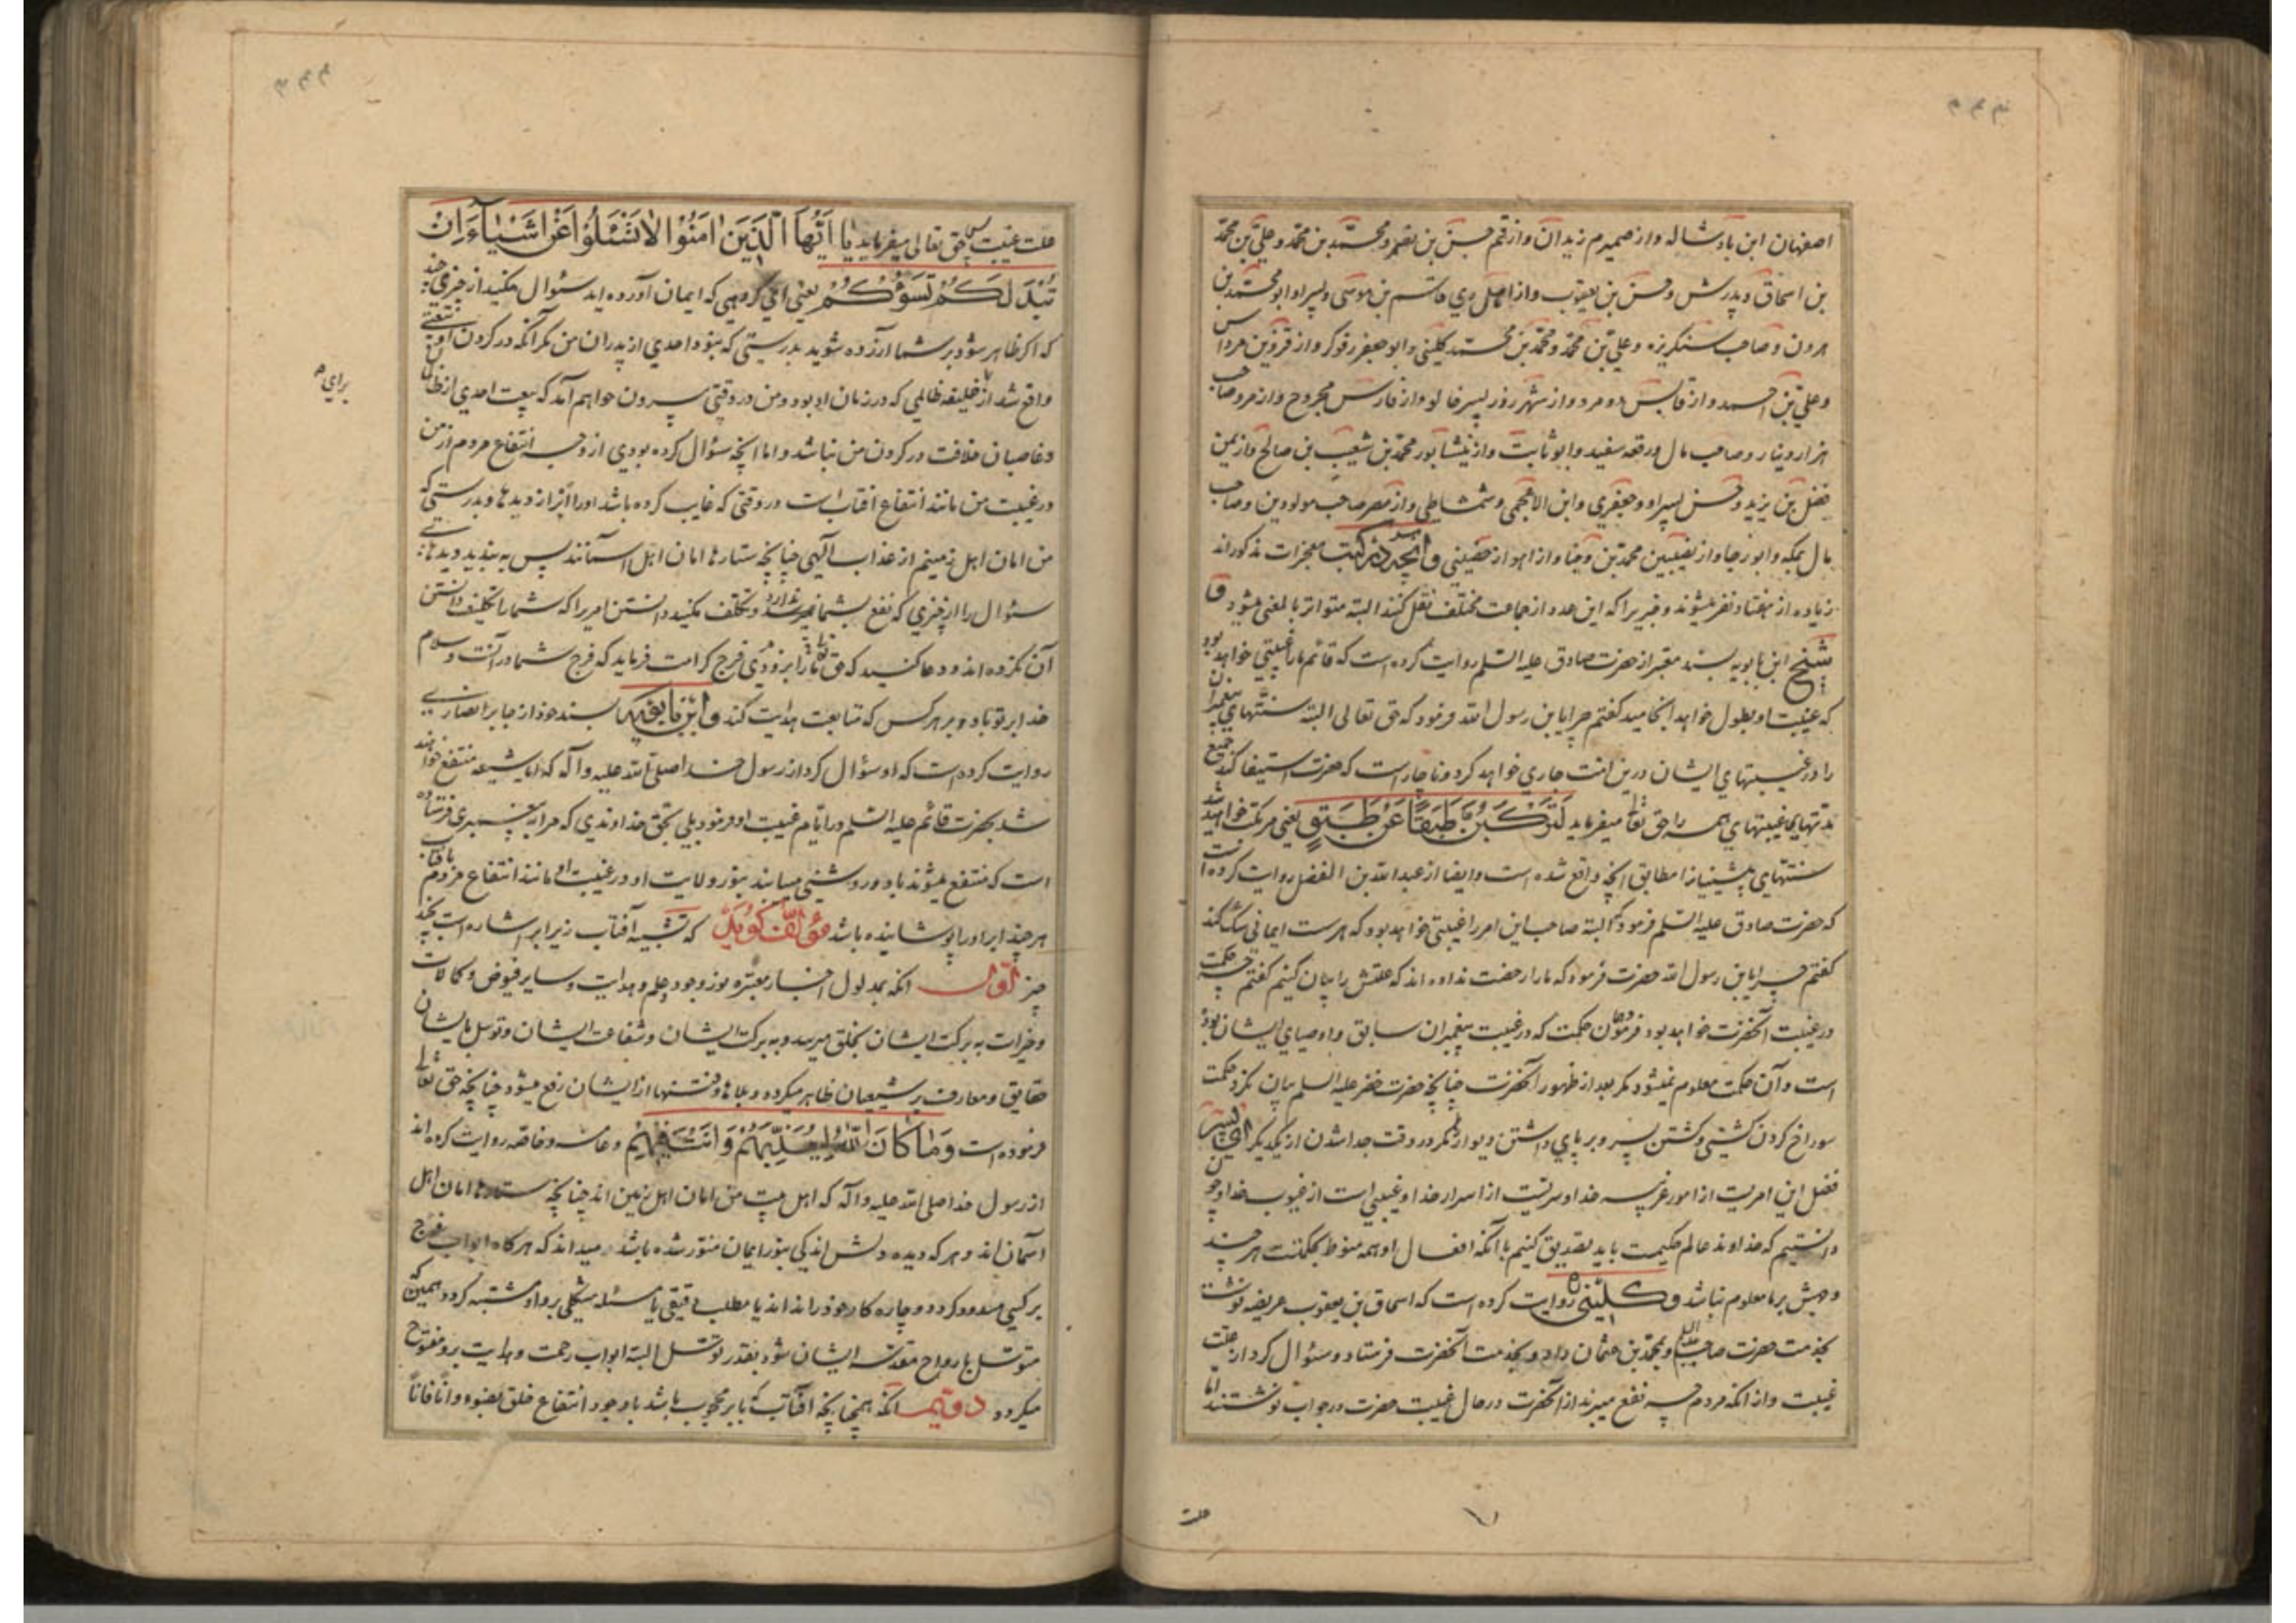 اصفهان ابن بادشاله و از صمیرم زیدان و از قم حسن بن نضر و محمّد بن محمّد و علی بن محمّد
بن اسحاق و پدرش و حسن بن یعقوب و از اهل ری قاسم بن موسی و پسر او و ابو محمّد بن
هرون و صاحب سنکریزه و علی بن محمّد و محمّد بن محمّد کلینی و ابو جعفر رفوکر و از قزوین مرداس
و علی بن احمد و از قابس دو مرد و از شهر زور پسر خالو و از فارس مجروح و از مرو صاحب
هزار دینار و صاحب مال و رقعه سفید و ابو ثابت و از نیشابور محمّد بن شعیب بن صالح و از یمن
فضل بن یزید و حسن پسر او و جعفری و ابن الاعجمی و شمشاطی و از مصر صاحب مولودین و صاحب
مال بمکه و ابو رجا و از نصیبین محمّد بن وجنا و از اهواز حصینی و آنچه در کتب معجزات مذکوراند
زیاده از هفتاد نفر میشوند و خبریرا که این عدد از جماعت مختلف نقل کنند البته متواتر بالمعنی میشود و
شیخ ابن بابویه بسند معتبر از حضرت صادق علیه السّلم روایت کرده است که قائم ما را غیبتی خواهد بود
که غیبت او بطول خواهد انجامید کفتم چرا یا بن رسول الله فرمود که حق تعالی البته سنّتهای پیغمبران
را در غیبتهای ایشان درین امّت جاری خواهد کرد و ناچار است که حضرت استیفا کند جمیع
مدتهای غیبتهای همه را حق تعالی میفرماید لَتَرْكَبُنَّ طَبَقًا عَنْ طَبَقٍ یعنی مرتکب خواهید شد
سنتهای پیشینیانرا مطابق آنچه واقع شده است و ایضا از عبد الله بن الفضل روایت کرده است
که حضرت صادق علیه السّلم فرمود که البته صاحب این امر را غیبتی خواهد بود که هر سست ایمانی شک کند
کفتم چرا یا بن رسول الله حضرت فرمود که ما را رخصت نداده اند که علتش را بیان کنیم کفتم چه حکمت
در غیبت آنحضرت خواهد بود فرمود همان حکمت که در غیبت پیغمبران سابق و اوصیای ایشان بوده
است و آن حکمت معلوم نمیشود مکر بعد از ظهور آنحضرت چنانچه حضرت خضر علیه السلم بیان نکرد حکمت
سوراخ کردن کشتی و کشتن پسر و بر پای داشتن دیوار را مکر در وقت جدا شدن از یکدیکر ای پسر
فضل این امریست از امور غریبه خدا و سریست از اسرار خدا و غیبی است از غیوب خدا و چون
دانستیم که خداوند عالم حکیمست باید تصدیق کنیم با آنکه افعال او همه منوط بحکمتست هر چند
وجهش بر ما معلوم نباشد و کلینی ره روایت کرده است که اسحاق بن یعقوب عریضه نوشت
بخدمت حضرت صاحب علیه السلم و بمحمّد بن عثمان داد و بخدمت آنحضرت فرستاد و سؤال کرد از علّت
غیبت و از آنکه مردم چه نفع میبرند از آنحضرت در حال غیبت حضرت در جواب نوشتند امّا
علت
علت غیبت پس حق تعالی میفرماید یا اَیُّهَا الَّذینَ اٰمَنُوْا لاٰ تَسْئَلُوا عَنْ اَشْیٰاءَ اِنْ
تُبْدَ لَکُمْ تَسُؤْکُمْ یعنی ای کروهی که ایمان آورده اید سؤال مکنید از چیزی چند
که اکر ظاهر شود بر شما آزرده شوید بدرستی که نبود احدی از پدران من مکر آنکه در کردن او بیعتی
واقع شد از خلیفه ظالمی که در زمان او بود و من در وقتی بیرون خواهم آمد که بیعت احدی از ظالمان
برای
و غاصبان خلافت در کردن من نباشد و اما آنچه سؤال کرده بودی از وجه انتفاع مردم از من
در غیبت من مانند انتفاع آفتابست در وقتی که غایب کرده باشد او را ابر از دیدها و بدرستی که
من امان اهل زمینم از عذاب الهی چنانچه ستارها امان اهل آسمانند پس به بندید دیدهای
سؤال را از چیزی که نفع بشما ندارد و تکلف مکنید دانستن امریرا که شما را تکلیف دانستن
آن نکرده اند و دعا کنید که حق تعالی شما را بزودی فرج کرامت فرماید که فرج شما در آنست و سلام
خدا بر تو باد و بر هر کس که متابعت هدایت کند و ابن بابویه بسند خود از جابر انصاری
روایت کرده است که او سؤال کرد از رسول خدا صلی الله علیه و آله که آیا شیعه منتفع خواهند
شد بحضرت قائم علیه السّلم در ایّام غیبت او فرمود بلی بحق خداوندی که مرا به پیغمبری فرستاده
است که منتفع میشوند باو و روشنی مییابند بنور ولایت او در غیبت او مانند انتفاع مردم بافتاب
هر چند ابر او را پوشانیده باشد مؤلّف کوید که تشبیه آفتاب زیر ابر اشاره است بچند
چیز اوّل آنکه بمدلول اخبار معتبره نور وجود و علم و هدایت و سایر فیوض و کمالات
و خیرات به برکت ایشان بخلق میرسد و به برکت ایشان و شفاعت ایشان و توسّل بایشان
حقایق و معارف بر شیعیان ظاهر میکردد و بلاها و فتنها از ایشان رفع میشود چنانچه حق تعالی
فرموده است وَمٰا کٰانَ اللّٰهُ لِیُعَذِّبَهُمْ وَاَنْتَ فیٖهِمْ و عامّه و خاصّه روایت کرده اند
از رسول خدا صلی الله علیه و آله که اهل بیت من امان اهل زمین اند چنانچه ستارها امان اهل
آسمان اند و هر که دیده دلش اندکی بنور ایمان منوّر شده باشد میداند که هر کاه ابواب فرج
بر کسی مسدود کردد و چاره کار خود را نداند یا مطلب دقیقی یا مسئله مشکلی بر او مشتبه کردد همین که
متوسّل بارواح مقدّسه ایشان شود بقدر توسّل البته ابواب رحمت و هدایت برو مفتوح
میکردد دویم آنکه همچنانچه آفتاب که بابر محجوب باشد با وجود انتفاع خلق بضوء او آنا فاناً